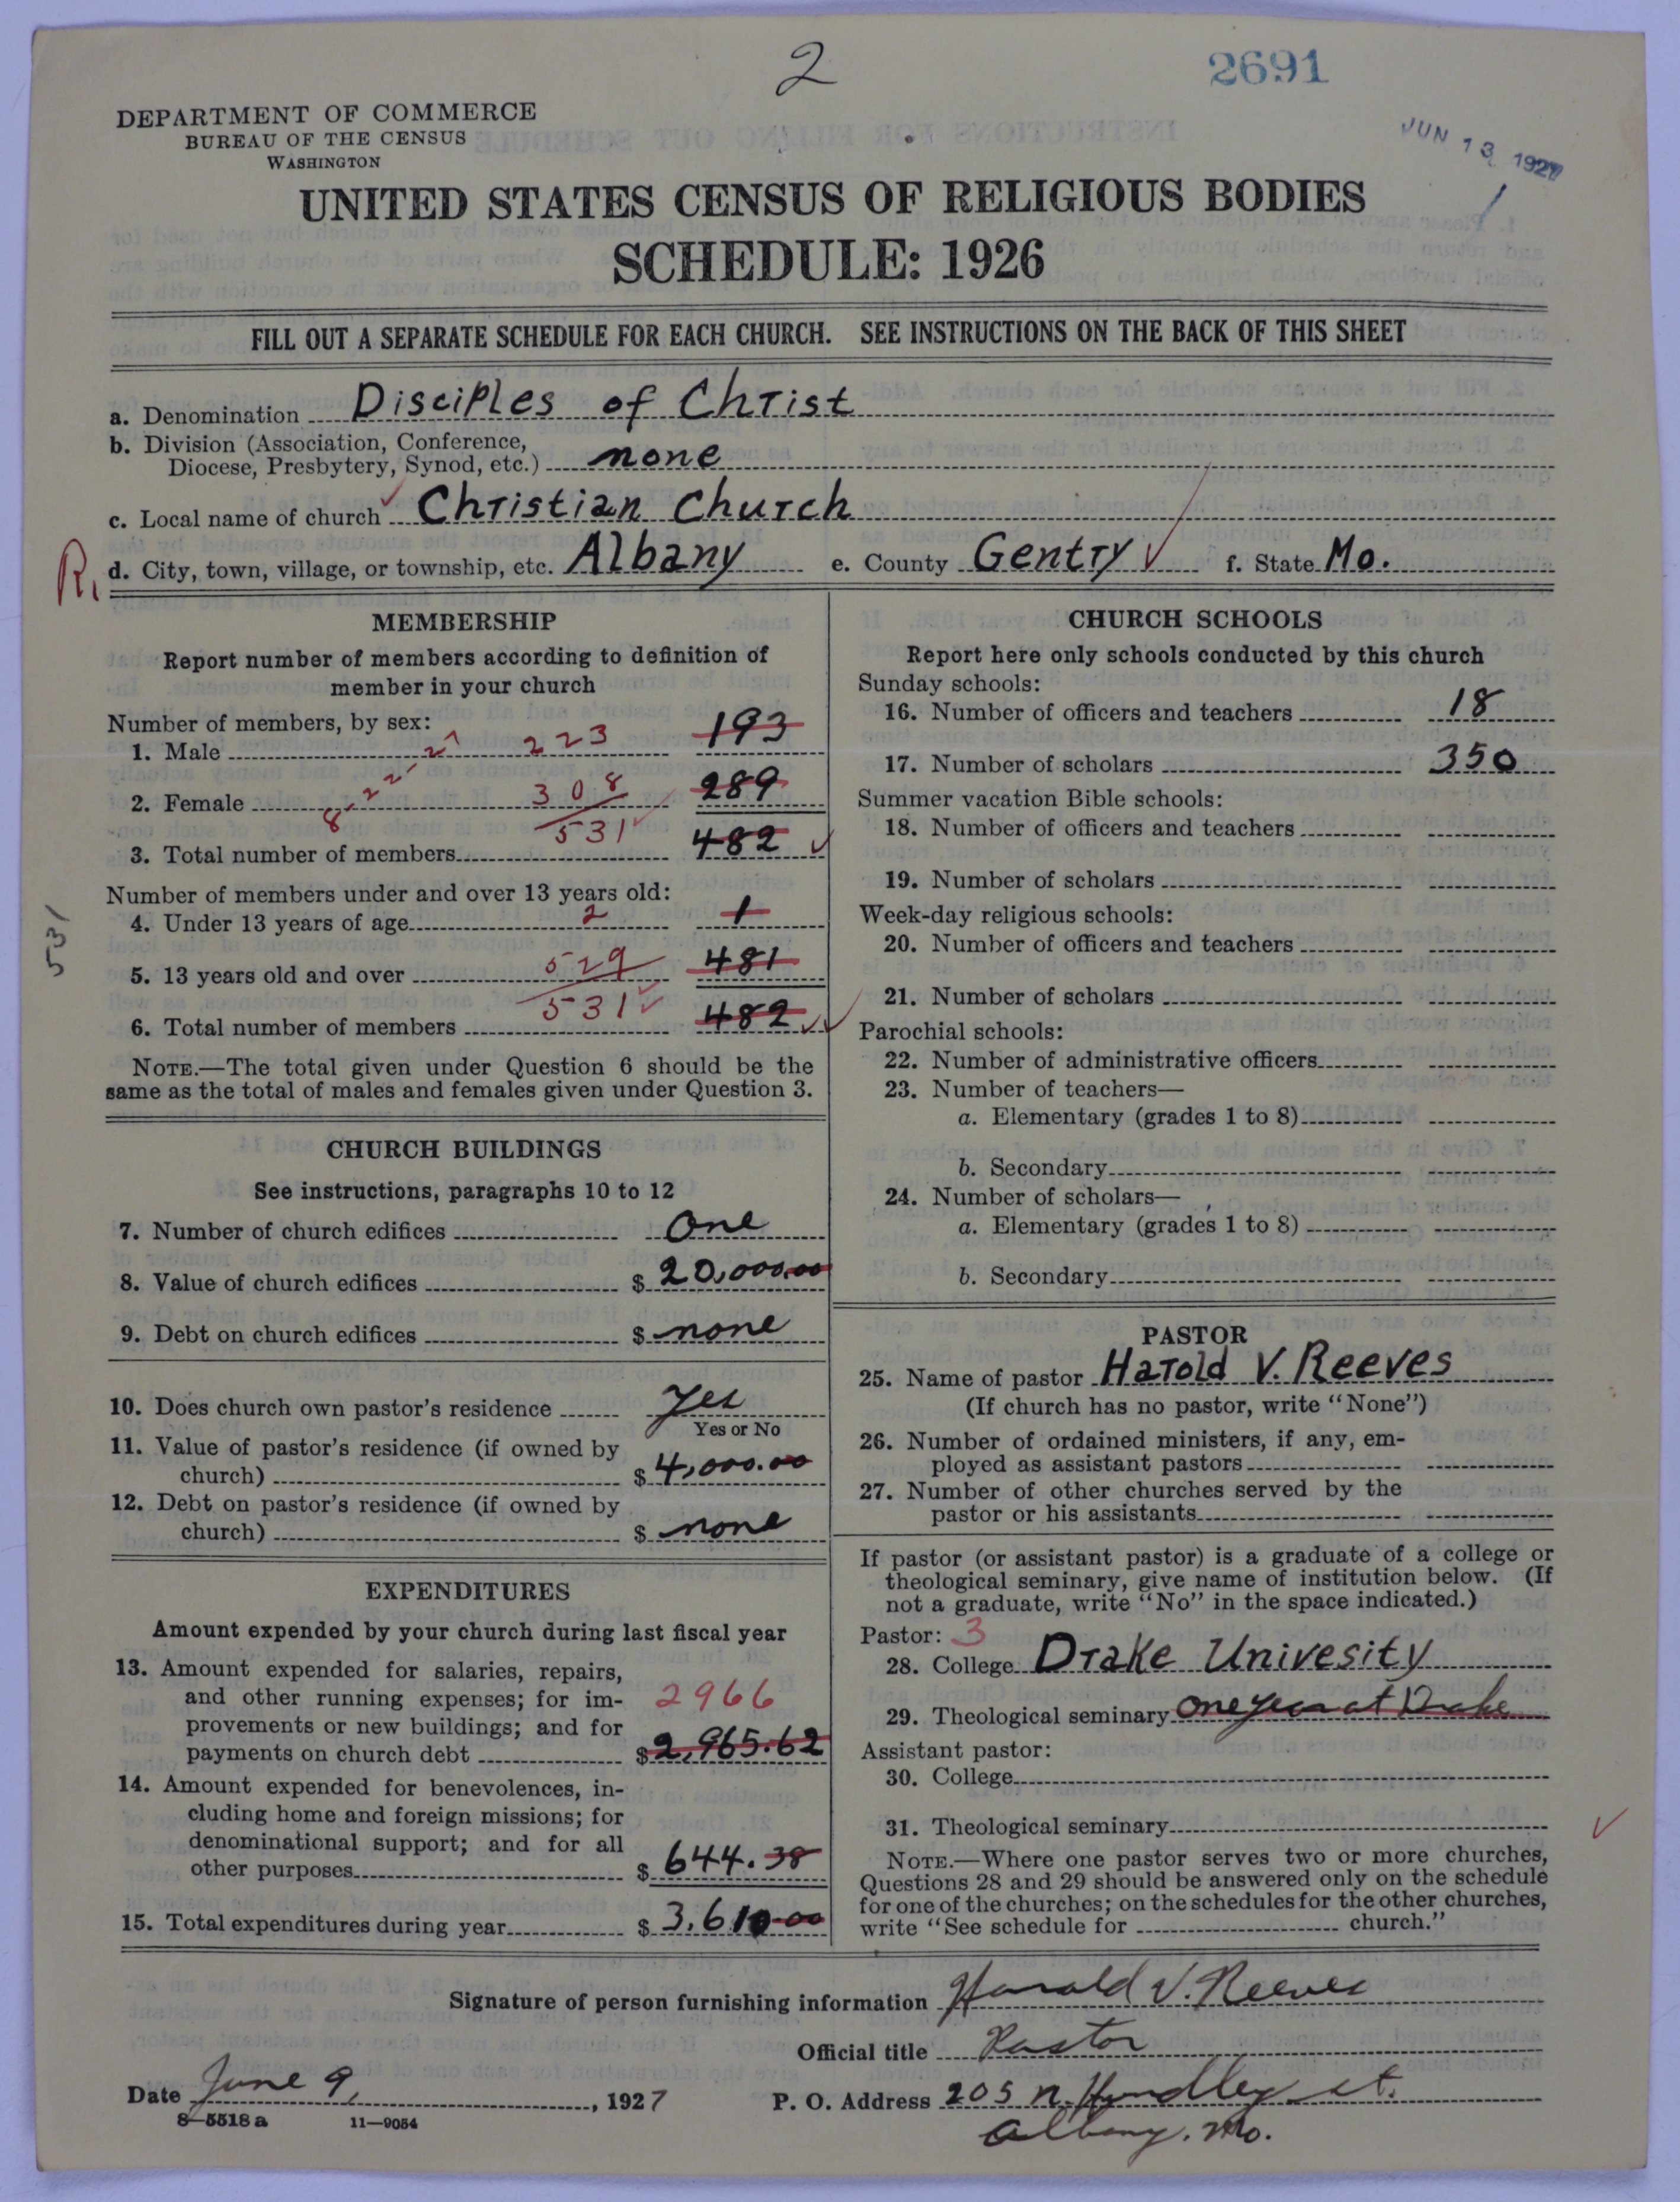 2
2691
JUN 13 1927
DEPARTMENT OF COMMERCE
BUREAU OF THE CENSUS
WASHINGTON
UNITED STATES CENSUS OF RELIGIOUS BODIES
SCHEDULE: 1926
FILL OUT A SEPARATE SCHEDULE FOR EACH CHURCH. SEE INSTRUCTIONS ON THE BACK OF THIS SHEET
a. Denomination Disciples of Christ
b. Division (Association, Conference,
Diocese, Presbytery, Synod, etc.) none
c. Local name of church Christian Church
R, d. City, town, village, or township, etc. Albany e. County Gentry f. State Mo.
MEMBERSHIP
Report number of members according to definition of
member in your church
Number of members, by sex:
1. Male 223 193
2. Female 308 289
8-22-27
531
3. Total number of members 482
Number of members under and over 13 years old:
4. Under 13 years of age 2 1
531
5. 13 years old and over 529 481
531
6. Total number of members 482
NOTE.—The total given under Question 6 should be the
same as the total of males and females given under Question 3.
CHURCH BUILDINGS
See instructions, paragraphs 10 to 12
7. Number of church edifices One
8. Value of church edifices $ 20,000.00
9. Debt on church edifices $ none
10. Does church own pastor's residence Yes
Yes or No
11. Value of pastor's residence (if owned by
church) $ 4,000.00
12. Debt on pastor's residence (if owned by
church) $ none
EXPENDITURES
Amount expended by your church during last fiscal year
13. Amount expended for salaries, repairs,
and other running expenses; for im- 2966
provements or new buildings; and for
payments on church debt $ 2,965.62
14. Amount expended for benevolences, in-
cluding home and foreign missions; for
denominational support; and for all
other purposes $ 644.38
15. Total expenditures during year $ 3,610.00
CHURCH SCHOOLS
Report here only schools conducted by this church
Sunday schools:
16. Number of officers and teachers 18
17. Number of scholars 350
Summer vacation Bible schools:
18. Number of officers and teachers
19. Number of scholars
Week-day religious schools:
20. Number of officers and teachers
21. Number of scholars
Parochial schools:
22. Number of administrative officers
23. Number of teachers—
a. Elementary (grades 1 to 8)
b. Secondary
24. Number of scholars—
a. Elementary (grades 1 to 8)
b. Secondary
PASTOR
25. Name of pastor Harold V. Reeves
(If church has no pastor, write "None")
26. Number of ordained ministers, if any, em-
ployed as assistant pastors
27. Number of other churches served by the
pastor or his assistants
If pastor (or assistant pastor) is a graduate of a college or
theological seminary, give name of institution below. (If
not a graduate, write "No" in the space indicated.)
Pastor: 3
28. College Drake Univesity
29. Theological seminary One year at Drake
Assistant pastor:
30. College
31. Theological seminary
NOTE.—Where one pastor serves two or more churches,
Questions 28 and 29 should be answered only on the schedule
for one of the churches; on the schedules for the other churches,
write "See schedule for church."
Signature of person furnishing information Harold V. Reeves
Official title Pastor
Date June 9, 1927 P. O. Address 205 N. Hundley st.
Albany, Mo.
8-5518a 11-9054